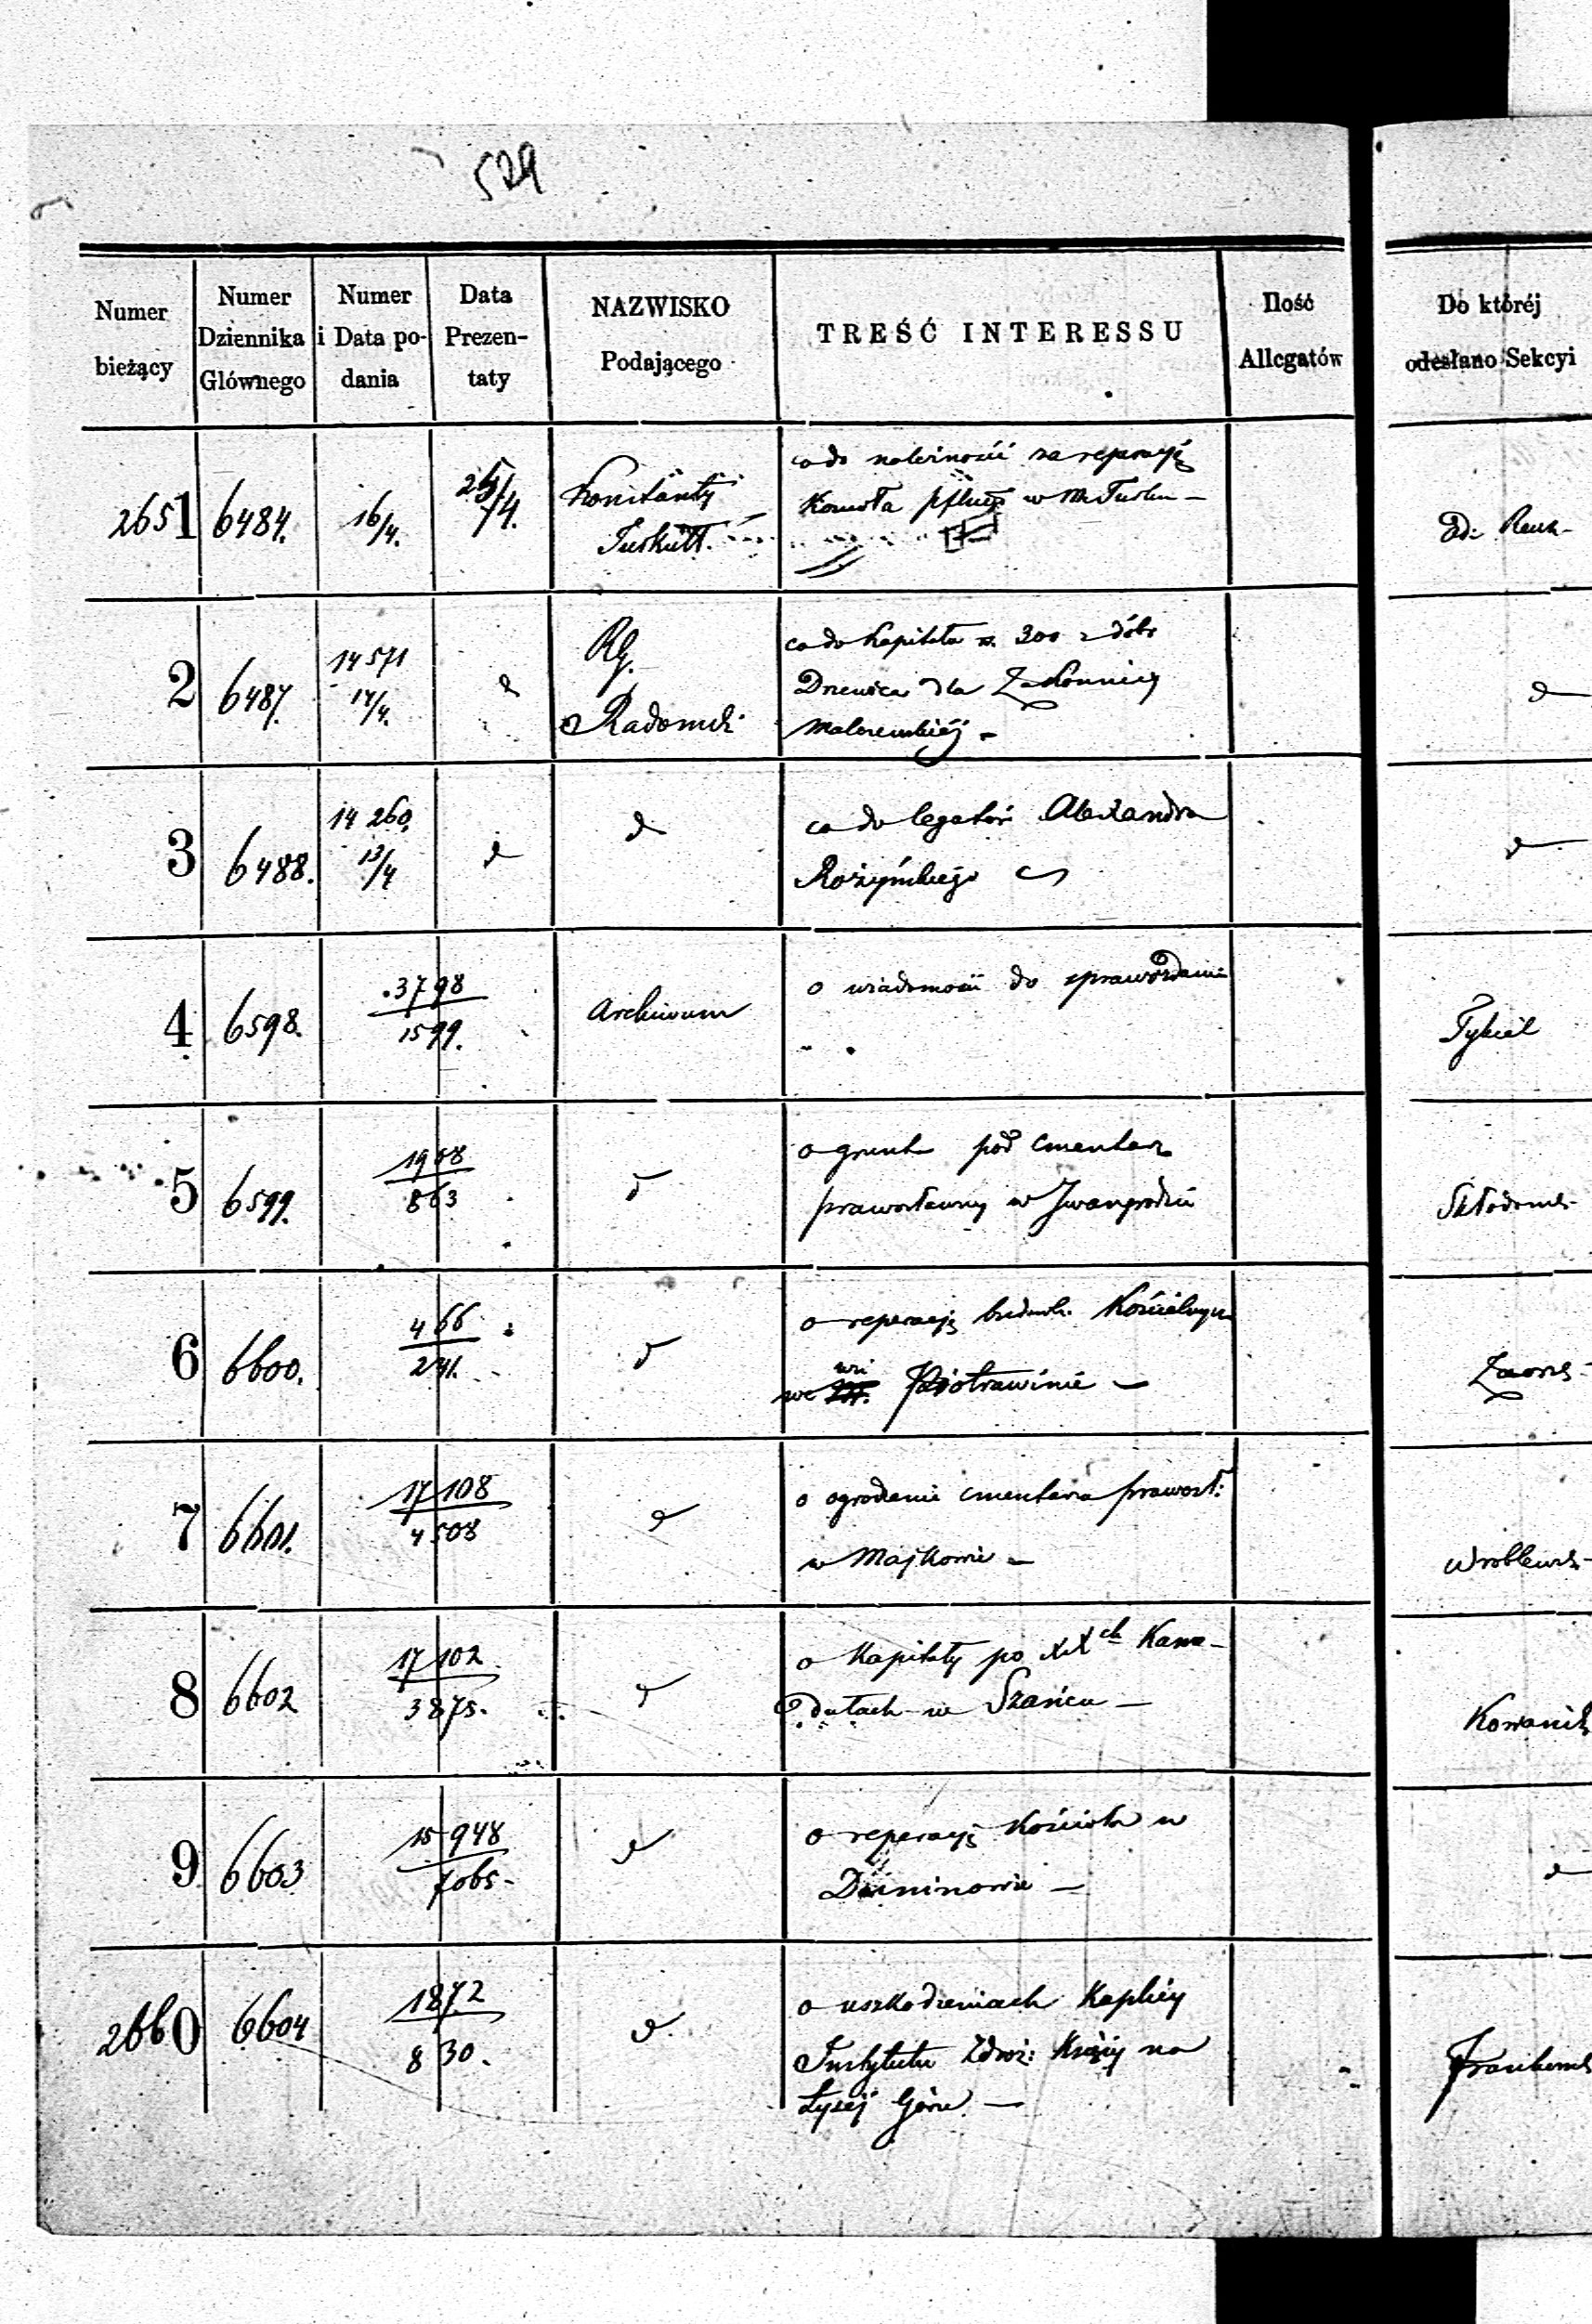 529
Numer bieżący
Numer Dziennika Głównego
Numer i Data podania
Data Prezentaty
NAZWISKO Podającego
TREŚĆ INTERESSU
Ilość Allegatów
Do któréj odesłano Sekcyi
2651 6484. 16/4. 25/4. Konstanty co do należności za reperacyę
Kościoła w
2 6487. 14571 17/4. Rg. co do Kapitału 300 z dóbr
Radomski Drzewica dla Zakonnicy
3 6488. 14 260. 13/4 co do legatów Alexandra
Rożyńskiego
4 6598. 3798 1599. Archiwum o wiadomości do sprawozdania
5 6599. 1968 863 o grunt pod cmentarz Skłodows-
prawosławny w Iwangrodzie
6 6600. 466 241. o reperacyę budowl. Kościelnych
we wsi Piotrawinie –
7 6601. 17108 4508 o ogrodzenie cmentarza prawosł:
w Majkowie – Wroblews-
8 6602 17102 3875. o Kapitały po XXch Kan-
dutach w Szańcu –
9 6603 15948 7065- o reperacyę Kościoła w
Duninowie –
2660 6604 1872 830. o uszkodzeniach Kaplicy
Instytutu Zdroż: Księży na
Łysej Górze –